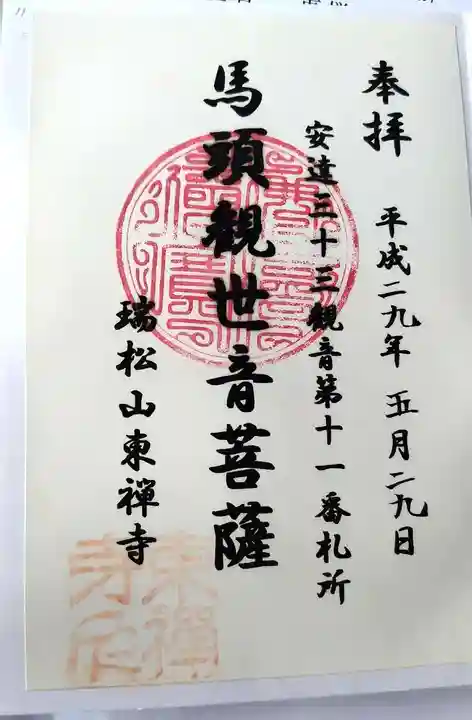 奉拝 平成二九年 五月二九日
安達三十三観音第十一番札所
馬頭観世音菩薩
瑞松山東禅寺